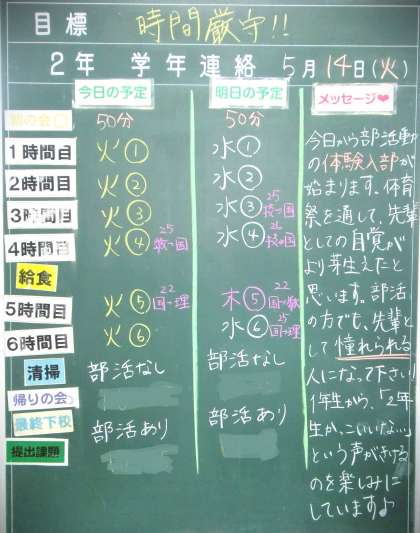 目標 時間厳守!!
2年 学年連絡 5月14日(火)
今日の予定 明日の予定 メッセージ❤
朝の会 50分 50分
1時間目 火① 水①
2時間目 火② 水②
3時間目 火③ 水③ 25 技→国
4時間目 火④ 25 数→国 水④
給食
5時間目 火⑤ 22 国→理 木⑤ 22 国→数
6時間目 火⑥ 水⑥ 25 国→理
清掃 部活なし 部活なし
帰りの会
最終下校 部活あり 部活あり
提出課題
今日から部活動
の体験入部が
始まります。体育
祭を通して、先輩
としての自覚が
より芽生えたと
思います。部活
の方でも、先輩と
して憧れられる
人になって下さい!
1年生から、「2年
生かっこいいな…」
という声がきける
のを楽しみに
しています♪